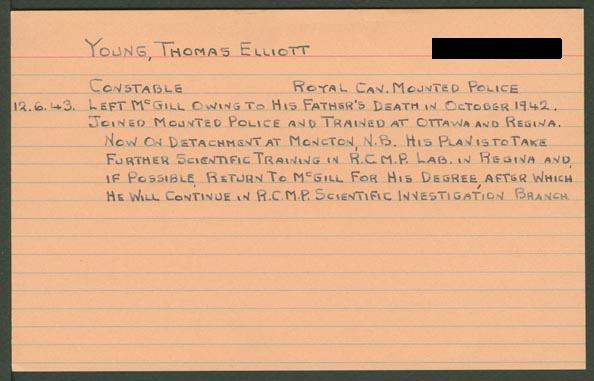 Young, Thomas Elliott
Constable Royal Can. Mounted Police
12.6.43. Left McGill owing to His Father's Death in October 1942.
Joined Mounted Police and Trained at Ottawa and Regina.
Now on Detachment at Moncton, N.B. His Plan is to Take
Further Scientific Training in R.C.M.P. Lab. in Regina and,
if Possible, Return to McGill for His Degree, after Which
He Will Continue in R.C.M.P. Scientific Investigation Branch